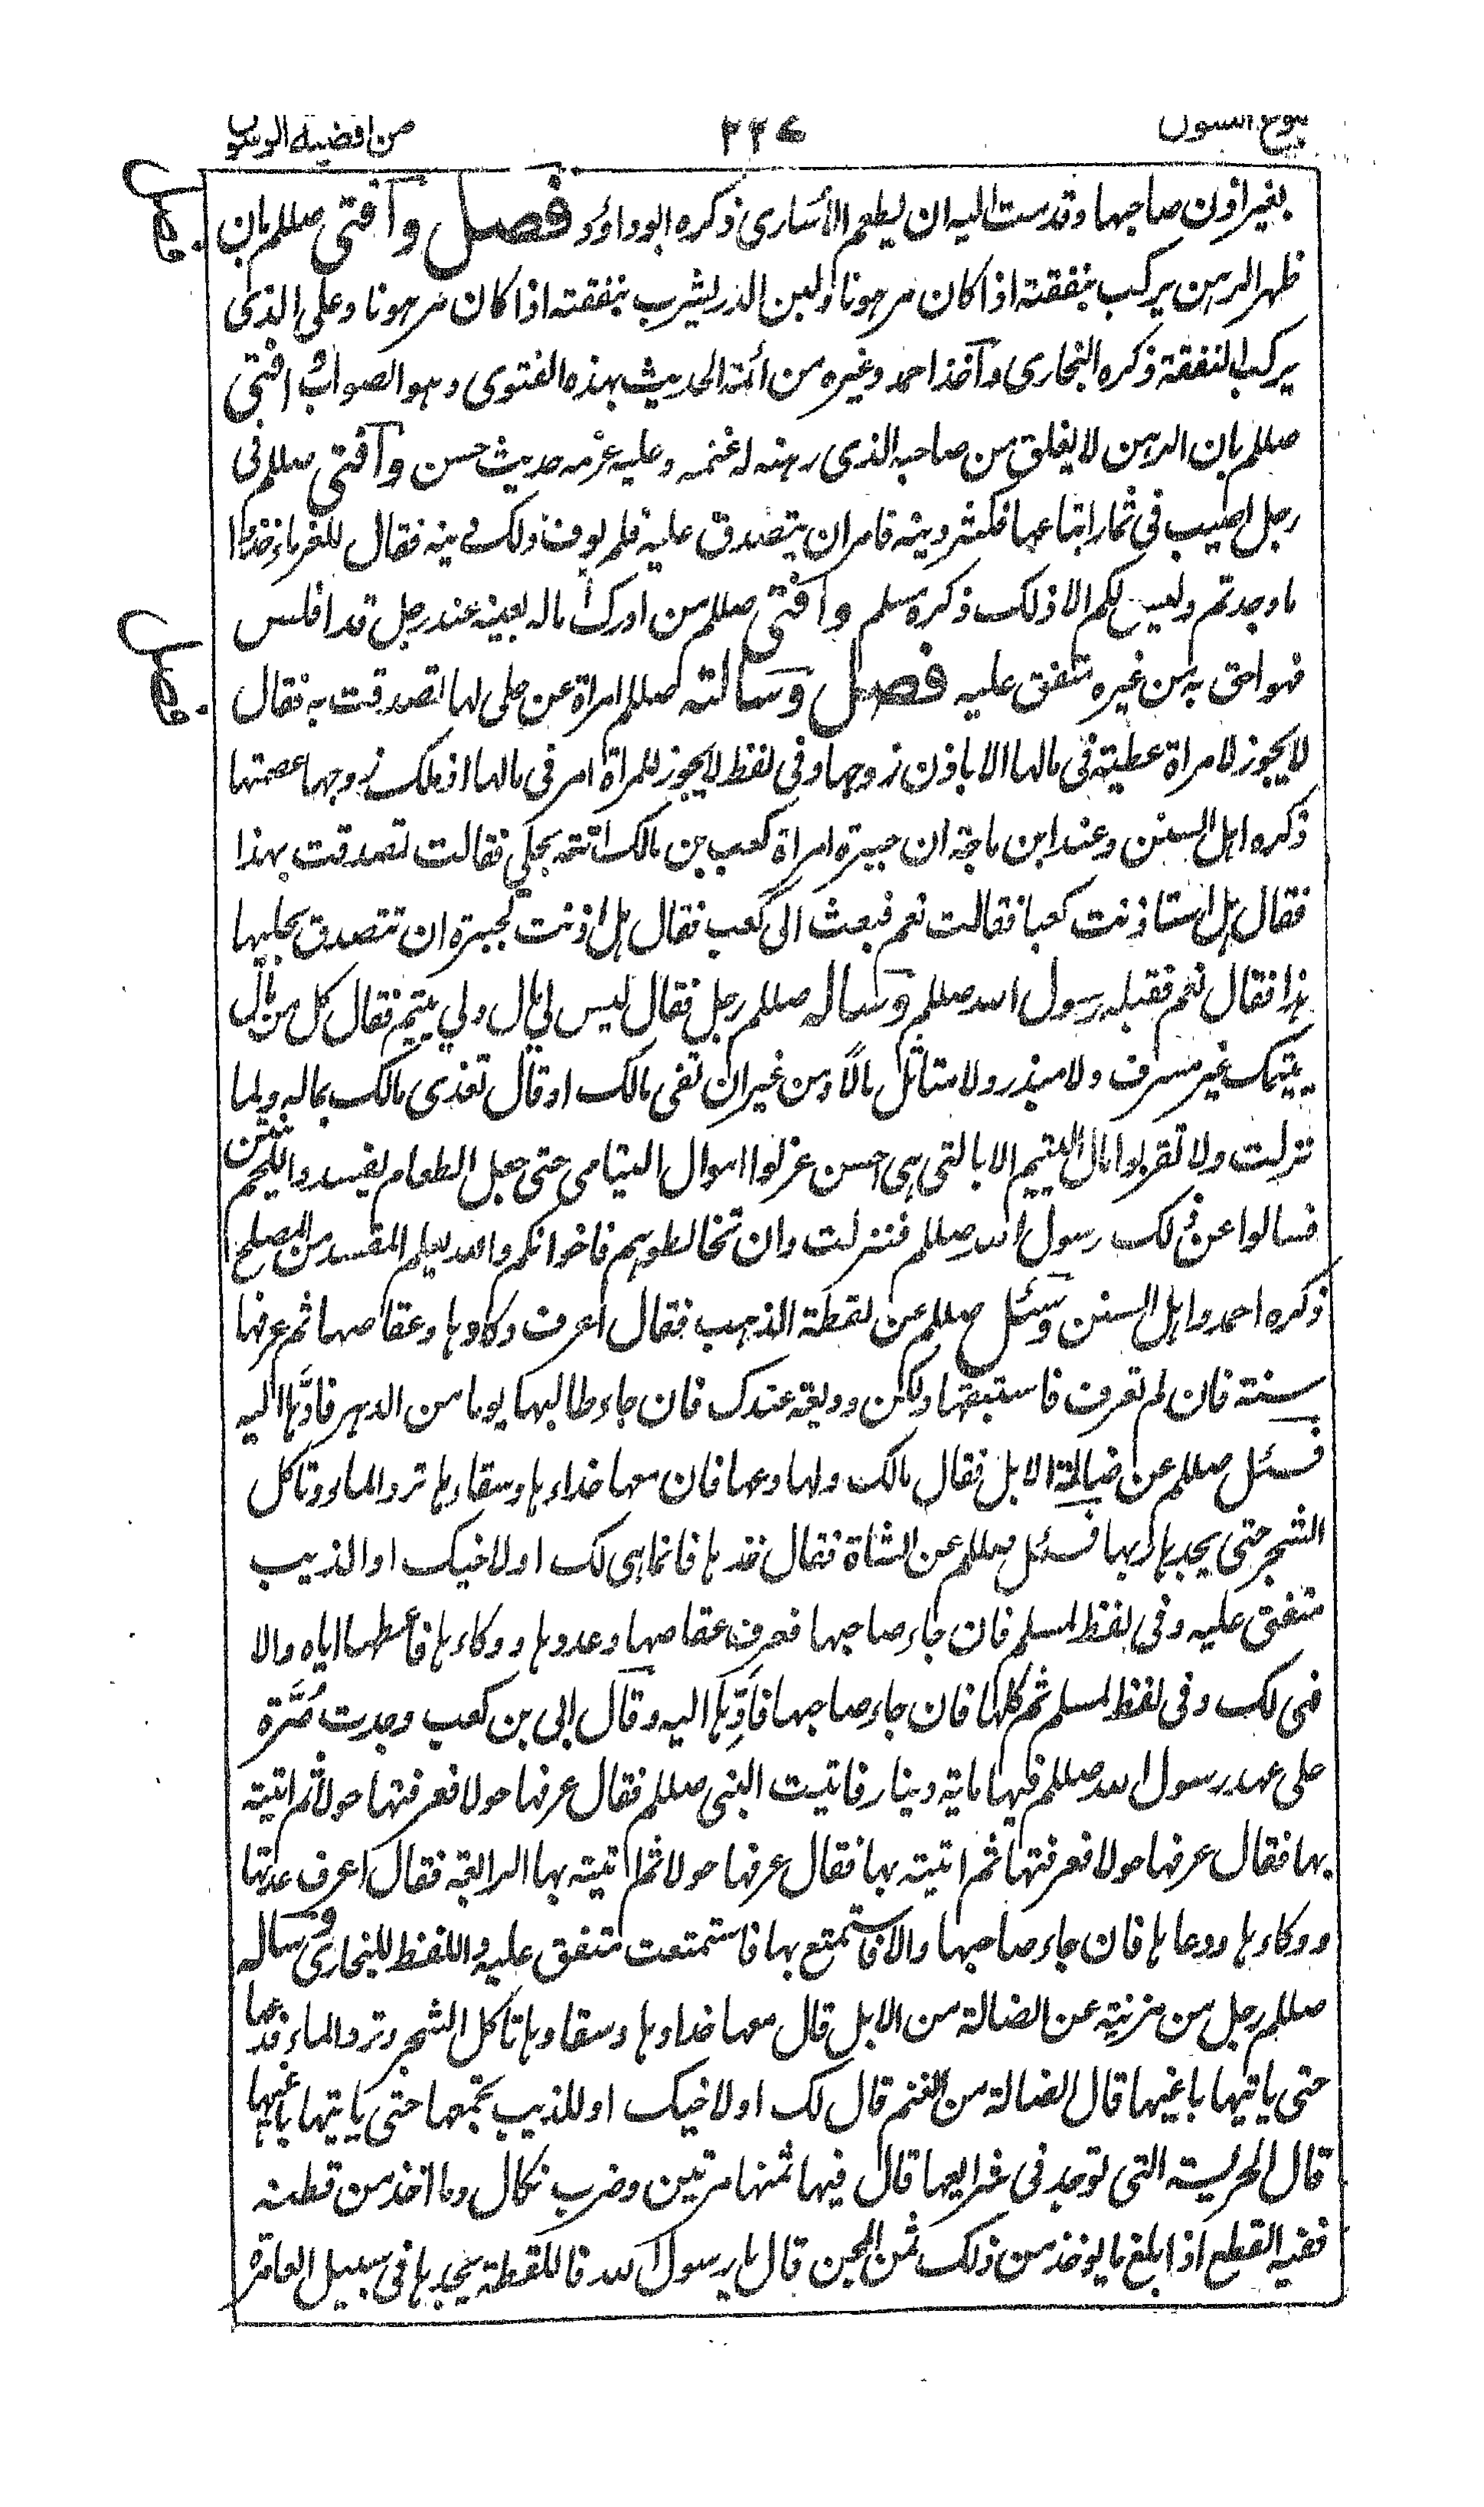 بلوغ السول ٢٢٧ من اقضية الرسول
بغير اذن صاحبها وقد ست اليه ان يطعم الأسارى ذكره ابوداؤد فصل وآفتى صللم بان
ظهر الرهن يركب بنفقته اذا كان مرهونا ولبن الدر يشرب بنفقته اذا كان مرهونا وعلى الذى
يركب النفقة ذكره البخارى وآخذ احمد وغيره من ائمة الحديث بهذه الفتوى وهو الصواب وافتى
صللم بان الرهن لا يغلق من صاحبه الذى رهنه له غنمه وعليه غرمه حديث حسن وآفتى صللم فى
رجل اصيب فى ثمار ابتاعها فكثر دينه فامران يتصدق عليه فلم يوف ذلك دينه فقال للغرماء خذوا
ما وجدتم وليس لكم الا ذلك ذكره مسلم وآفتى صللم من ادرك ماله بعينه عند رجل قد افلس
فهو احق به من غيره متفق عليه فصل وسالته صللم امراة عن حلى لها تصدقت به فقال
لا يجوز لامراة عطية فى مالها الا باذن زوجها وفى لفظ لا يجوز للمراة امر فى مالها اذا ملك زوجها عصمتها
ذكره اهل السنن وعند ابن ماجة ان خيرة امراة كعب بن مالك اتته بحلى فقالت تصدقت بهذا
فقال هل استاذنت كعبا فقالت نعم فبعث الى كعب فقال هل اذنت لخيرة ان تتصدق بحليها
هذا فقال نعم فقبله رسول الله صللم وساله صللم رجل فقال ليس لى مال ولي يتيم فقال كل من مال
يتيمك غير مسرف ولا مبذر ولا متاثل مالاً ومن غير ان تقى مالك او قال تفدى مالك بماله ولما
نزلت ولا تقربوا مال اليتيم الا بالتى هى احسن عزلوا اموال اليتامى حتى جعل الطعام يفسد واللحم ينتن
فسالوا عن ذلك رسول الله صللم فنزلت وان تخالطوهم فاخوانكم والله يعلم المفسد من المصلح
ذكره احمد واهل السنن وسئل صللم عن لقطة الذهب فقال اعرف وكاءها وعقاصها ثم عرفها
سنة فان لم تعرف فاستبقها ولكن وديعة عندك فان جاء طالبها يوما من الدهر فادّها اليه
فسئل صللم عن ضالة الابل فقال مالك ولها دعها فان معها حذاءها وسقاءها ترد الماء وتاكل
الشجر حتى يجدها ربها فسئل صللم عن الشاة فقال خذها فانما هى لك او لاخيك او الذيب
متفق عليه وفى لفظ لمسلم فان جاء صاحبها فعرف عقاصها وعددها ووكاءها فاعطها اياه والا
فهى لك وفى لفظ لمسلم ثم كلها فان جاء صاحبها فادِّها اليه وقال ابى بن كعب وجدت صُرَّة
على عهد رسول الله صللم فيها ماية دينار فاتيت النبى صللم فقال عرفها حولا فعرفتها حولا ثم اتيته
بها فقال عرفها حولا فعرفتها ثم اتيته بها فقال عرفها حولا ثم اتيته بها الرابعة فقال اعرف عدتها
ووكاءها ووعاها فان جاء صاحبها والا فاستمتع بها فاستمتعت متفق عليه واللفظ للبخارى وساله
صللم رجل من مزنية عن الضالة من الابل قال معها حذاوها وسقاوها تاكل الشجر وترد الماء فدعها
حتى ياتيها باغيها قال الضالة من الغنم قال لك او لاخيك او للذيب تجمعها حتى ياتيها باغيها
قال الحريسة التى توجد فى مراتعها قال فيها ثمنها مرتين وضرب نكال وما اخذ من عطنه
ففيه القطع اذا بلغ ما يوخذ من ذلك ثمن المجن قال يا رسول الله فاللقطة يجدها فى سبيل العامرة